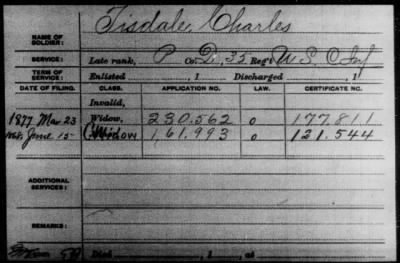 Tisdale, Charles
NAME OF SOLDIER:
SERVICE: Late rank, P Co. D, 35 Reg't U S C Inf
TERM OF SERVICE: Enlisted , 1 Discharged , 1
DATE OF FILING. CLASS. APPLICATION NO. LAW. CERTIFICATE NO.
Invalid,
1877 Mar 23 Widow, 230.562 0 177.811
June 15 161.993 0 121.544
ADDITIONAL SERVICES:
REMARKS:
Died , 1 , at